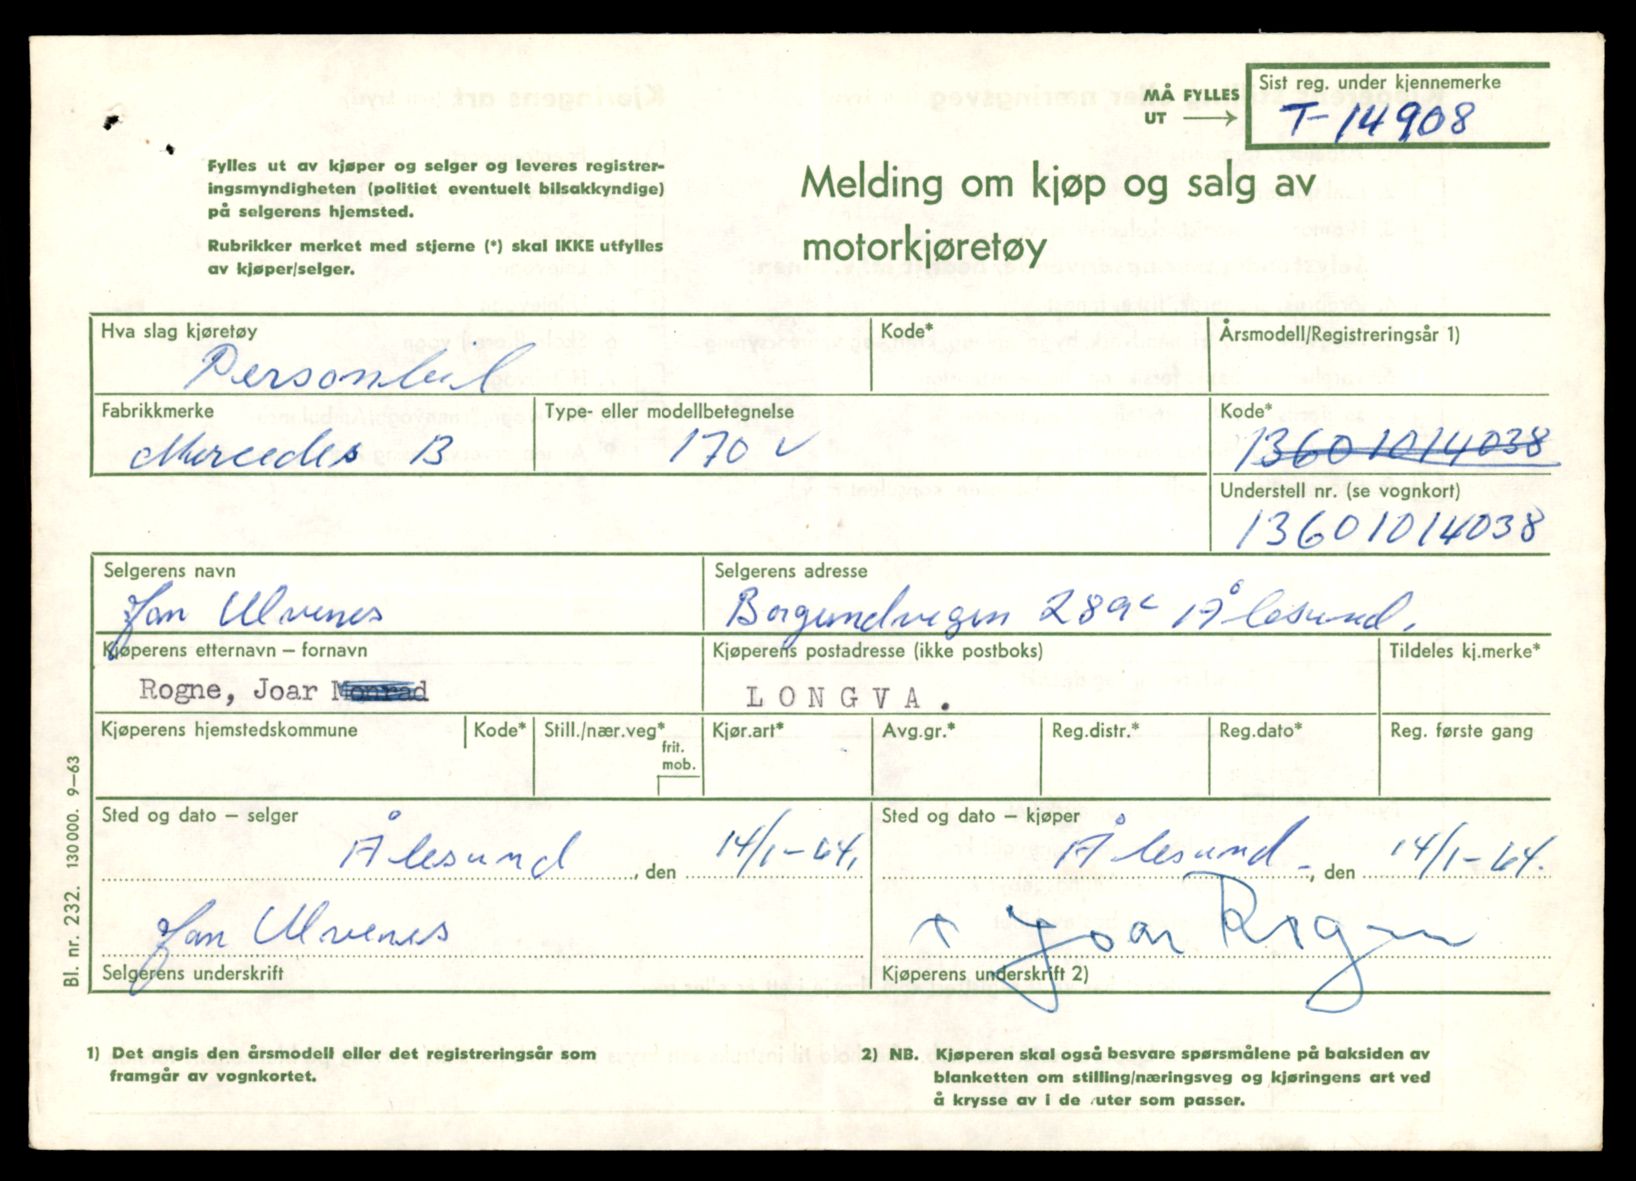 MÅ FYLLES
UT →
Sist reg. under kjennemerke
T-14908
Fylles ut av kjøper og selger og leveres registrer-
ingsmyndigheten (politiet eventuelt bilsakkyndige)
på selgerens hjemsted.
Rubrikker merket med stjerne (*) skal IKKE utfylles
av kjøper/selger.
Melding om kjøp og salg av
motorkjøretøy
Hva slag kjøretøy
Personbil
Kode*
Årsmodell/Registreringsår 1)
Fabrikkmerke
Mercedes B
Type- eller modellbetegnelse
170 V
Kode*
13601014038
Understell nr. (se vognkort)
13601014038
Selgerens navn
Jan Ulvenes
Selgerens adresse
Borgundvegen 289c Ålesund.
Kjøperens etternavn – fornavn
Rogne, Joar Monrad
Kjøperens postadresse (ikke postboks)
LONGVA.
Tildeles kj.merke*
Kjøperens hjemstedskommune
Kode*
Still./nær.veg*
frit.
mob.
Kjør.art*
Avg.gr.*
Reg.distr.*
Reg.dato*
Reg. første gang
Sted og dato – selger
Ålesund, den 14/1-64.
Sted og dato – kjøper
Ålesund, den 14/1-64.
Jan Ulvenes
Selgerens underskrift
x Joar Rogne
Kjøperens underskrift 2)
Bl. nr. 232. 130 000. 9–63
1) Det angis den årsmodell eller det registreringsår som
framgår av vognkortet.
2) NB. Kjøperen skal også besvare spørsmålene på baksiden av
blanketten om stilling/næringsveg og kjøringens art ved
å krysse av i de ruter som passer.